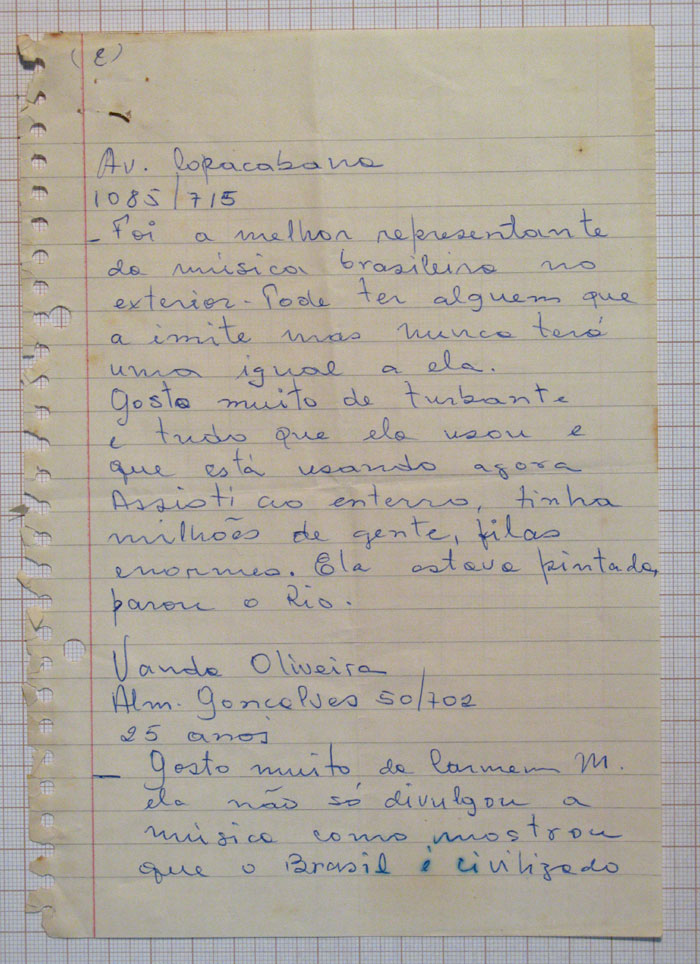 (2)
Av. Copacabana
1085/715
- Foi a melhor representante
da música brasileira no
exterior. Pode ter alguem que
a imite mas nunca terá
uma igual a ela.
Gosto muito de turbante
e tudo que ela usou e
que está usando agora
Assisti ao enterro, tinha
milhões de gente, filas
enormes. Ela estava pintada,
parou o Rio.
Vanda Oliveira
Alm. Gonçalves 50/702
25 anos
- Gosto muito da Carmem M.
ela não só divulgou a
música como mostrou
que o Brasil é civilizado